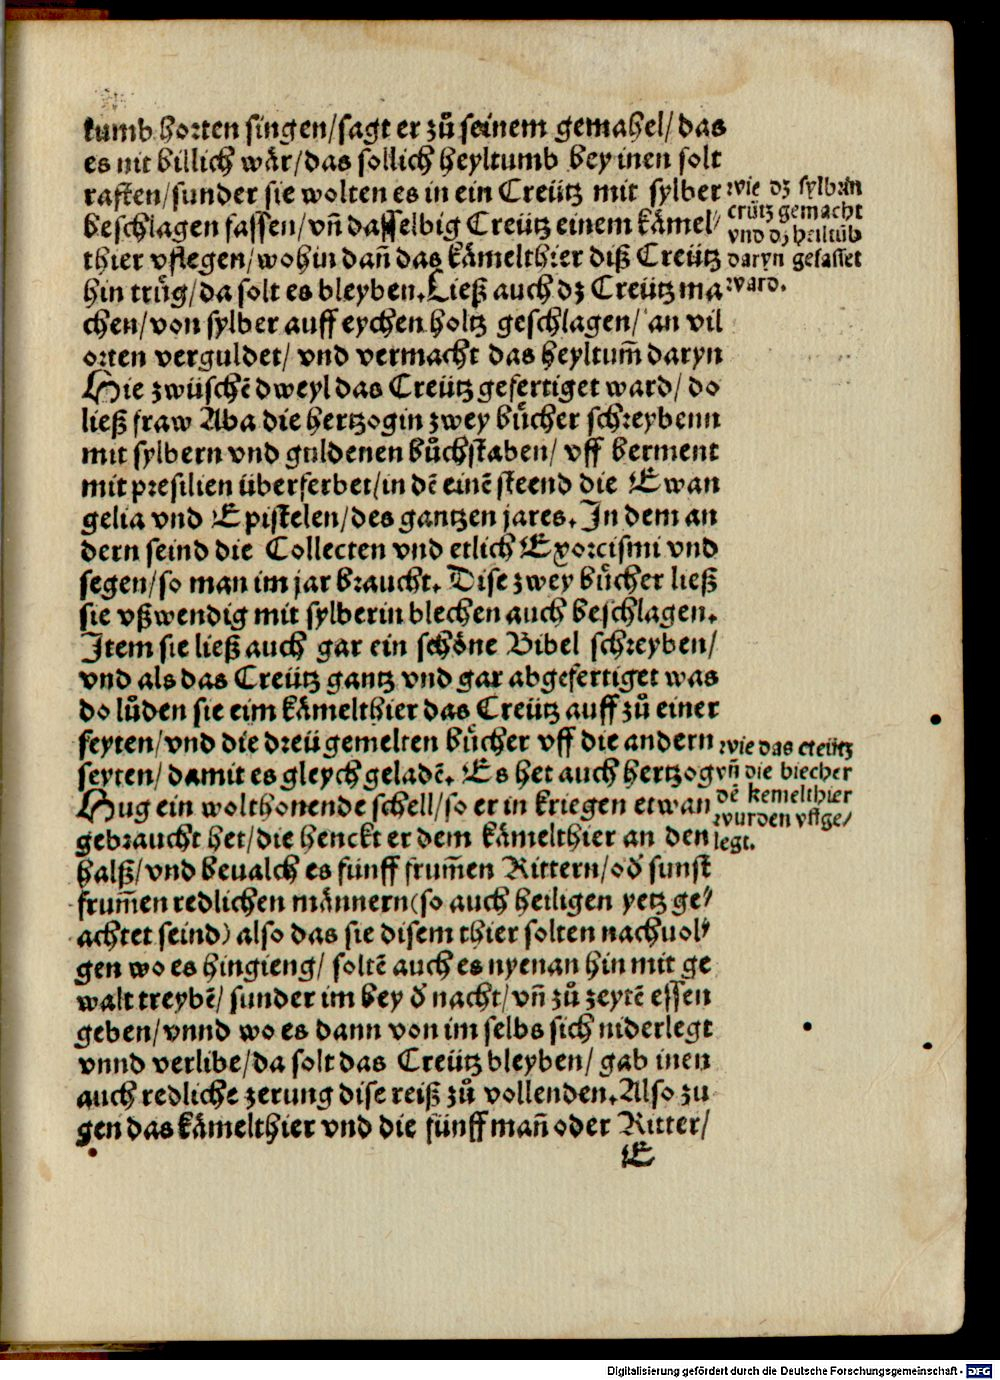 tumb horten singen/sagt er zů seinem gemahel/das
es nit billich wär/das sollich heyltumb bey inen solt
rasten/sunder sie wolten es in ein Creütz mit sylber
beschlagen fassen/vñ dasselbig Creütz einem kämel/
thier vflegen/wohin dañ das kämelthier diß Creütz
hin trůg/da solt es bleyben. Ließ auch dz Creütz ma
chen/von sylber auff eychen holtz geschlagen/an vil
orten verguldet/vnd vermacht das heyltum̃ daryn
Hie zwüschẽ dweyl das Creütz gefertiget ward/do
ließ fraw Aba die hertzogin zwey bücher schreybenn
mit sylbern vnd guldenen bůchstaben/vff berment
mit presilien überferbet/in dẽ einẽ steend die Ewan
gelia vnd Epistelen/des gantzen jares. In dem an
dern seind die Collecten vnd etlich Exorcismi vnd
segen/so man im jar braucht. Dise zwey bücher ließ
sie vßwendig mit sylberin blechen auch beschlagen.
Item sie ließ auch gar ein schöne Bibel schreyben/
vnd als das Creütz gantz vnd gar abgefertiget was
do lůden sie eim kämelthier das Creütz auff zů einer
seyten/vnd die dreü gemelten bücher vff die andern
seyten/damit es gleych geladẽ. Es het auch hertzog
Hug ein wolthonende schell/so er in kriegen etwan
gebraucht het/die henckt er dem kämelthier an den
halß/vnd beualch es fünff frum̃en Rittern/oď sunst
frum̃en redlichen männern(so auch heiligen yetz ge/
achtet seind) also das sie disem thier solten nachuol/
gen wo es hingieng/soltẽ auch es nyenan hin mit ge
walt treybẽ/sunder im bey ď nacht/vñ zů zeytẽ essen
geben/vnnd wo es dann von im selbs sich niderlegt
vnnd verlibe/da solt das Creütz bleyben/gab inen
auch redliche zerung dise reiß zů vollenden. Also zu
gen das kämelthier vnd die fünff mañ oder Ritter/
E
wie dz sylbrin
crütz gemacht
vnd dz heiltũb
daryn gefasset
ward.
wie das creütz
vñ die biecher
dẽ kemelthier
wurden vfge/
legt.
Digitalisierung gefördert durch die Deutsche Forschungsgemeinschaft - DFG